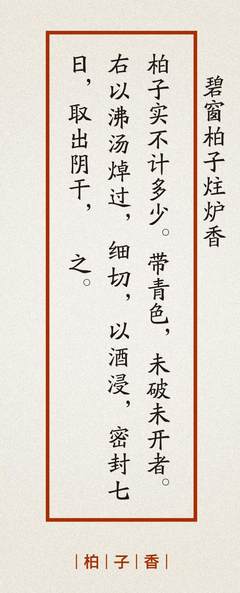 碧窗柏子炷炉香
柏子实不计多少。带青色，未破未开者。
右以沸汤焯过，细切，以酒浸，密封七
日，取出阴干，之。
|柏|子|香|